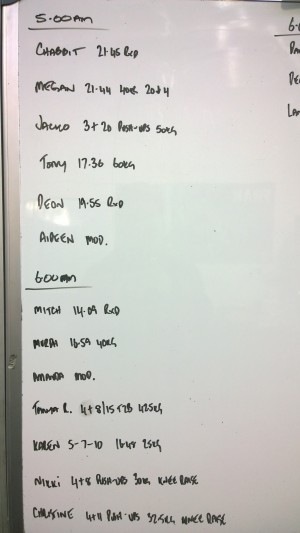 5.00am
CHABBIT 21.45 RXD
MEGAN 21.44 40KG 20#4
JACKO 3+20 PUSH-UPS 50KG
TONY 17.36 60KG
DEON 19.55 RXD
AIDEEN MOD.
6.00am
MITCH 14.09 RXD
16.59 40KG
AMANDA MOD.
TANYA R. 4+8/15 42.5KG
KAREN 5-7-10 16.48 25KG
NIKKI 4+8 PUSH-UPS 30KG KNEE RAISE
CHRISTINE 4+11 PUSH-UPS 32.5KG KNEE RAISE
6.